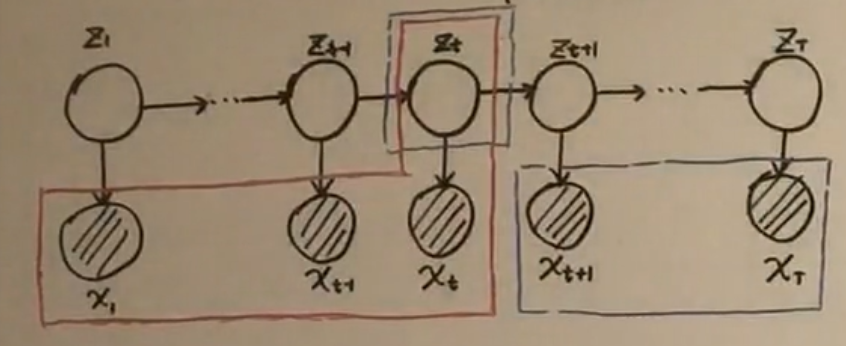 z₁ z_{t-1} z_t z_{t+1} z_T
... ...
x₁ x_{t-1} x_t x_{t+1} x_T